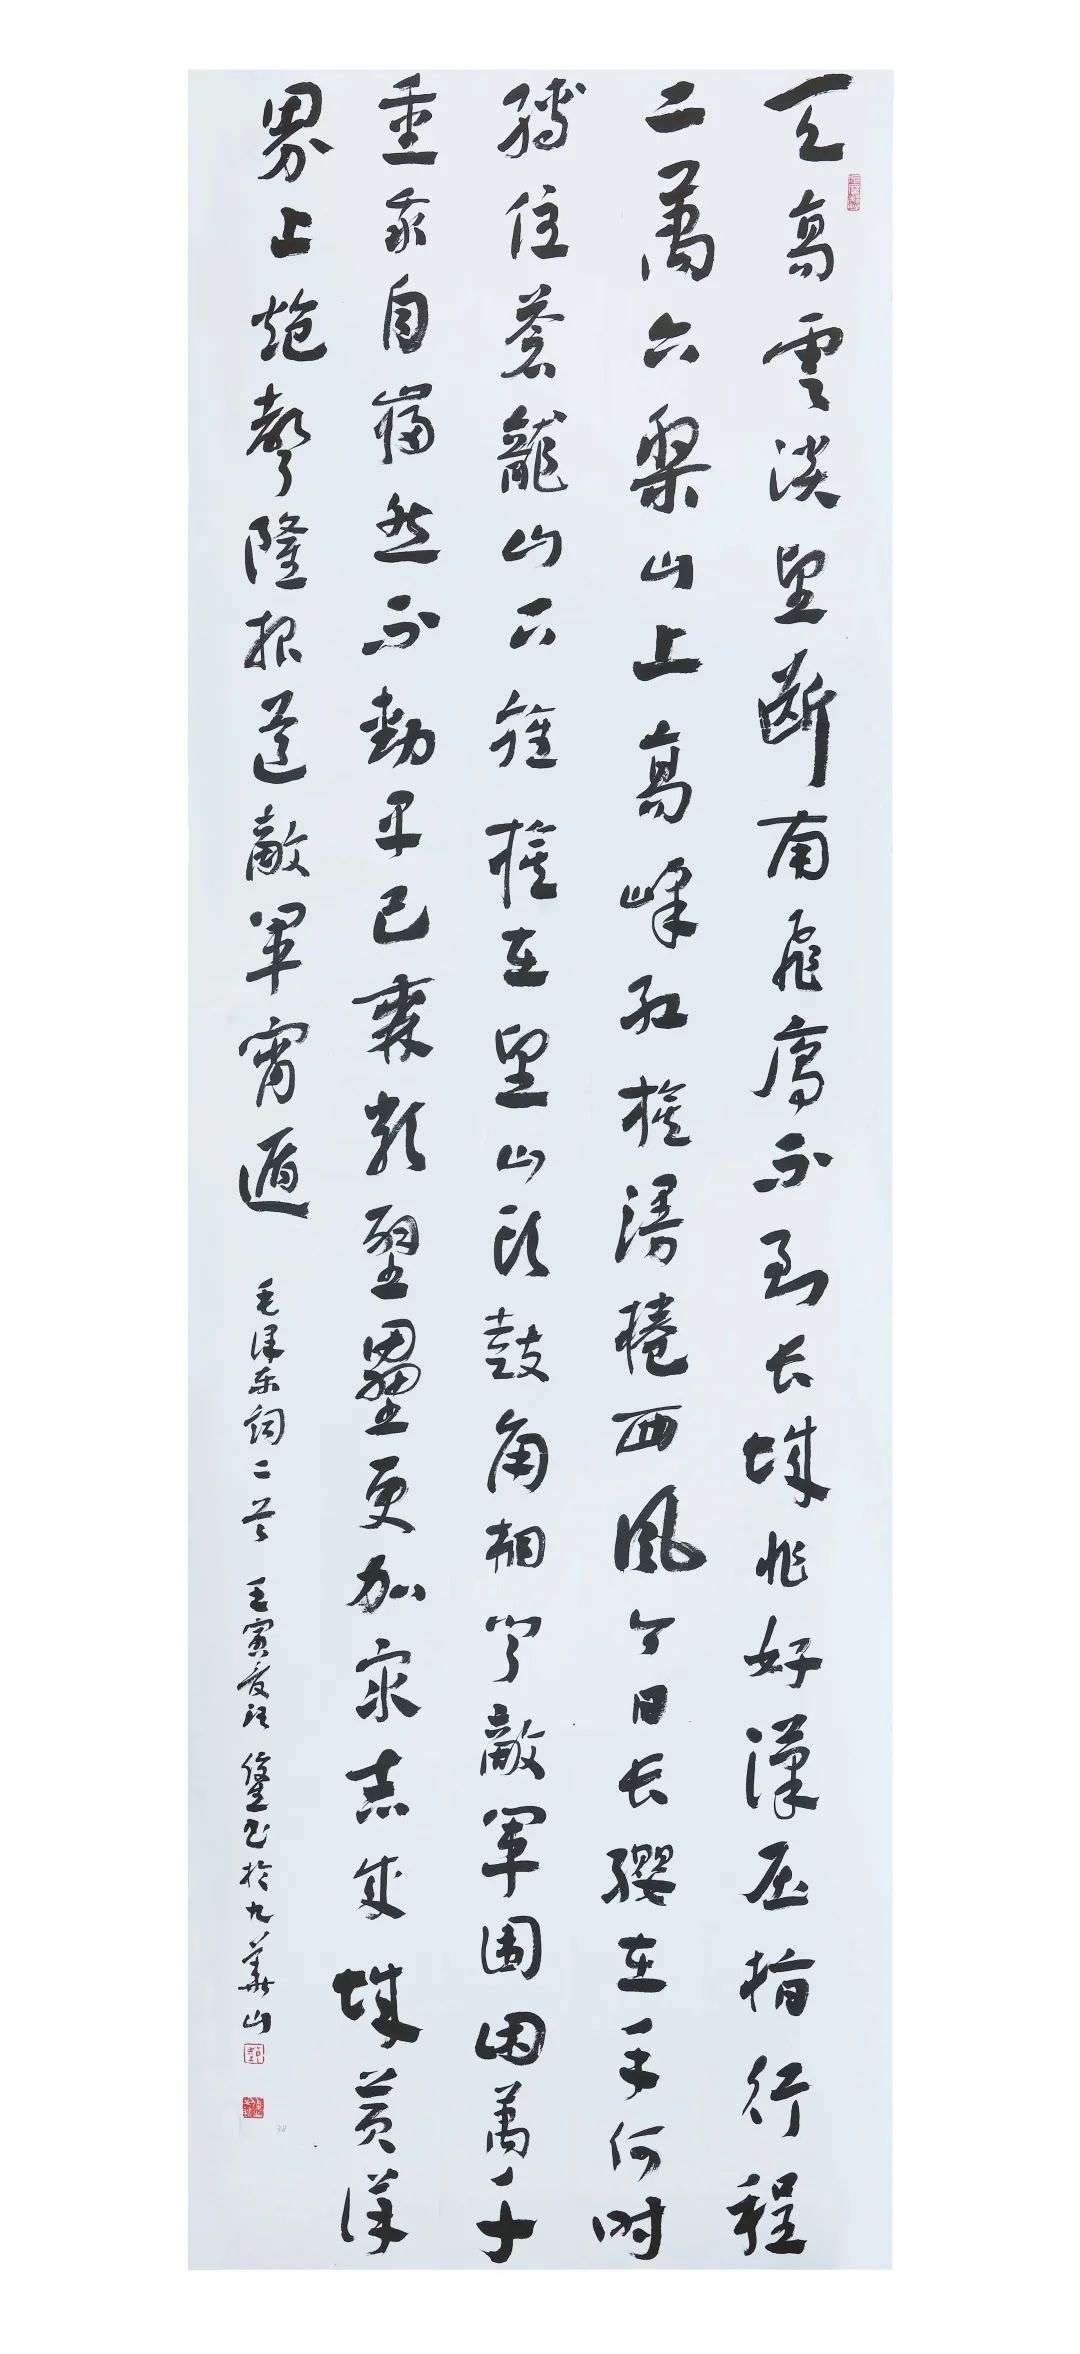 天高雲淡望斷南飛雁不到长城非好漢屈指行程
二萬六盤山上高峰红旗漫捲西風今日长纓在手何時
縛住蒼龍山下旌旗在望山头鼓角相闻敵軍圍困萬千
重我自巋然不動早已森嚴壁壘更加眾志成城黄洋
界上炮聲隆报道敵軍宵遁 毛泽东词二首 壬寅夏 书於九華山